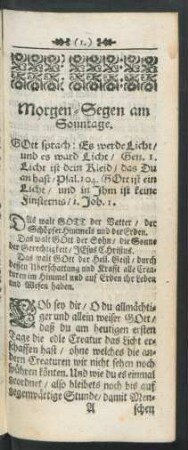 (1.)
Morgen-Segen am
Sonntage.
GOtt sprach: Es werde Licht/
und es ward Licht/ Gen. 1.
Licht ist dein Kleid/ das Du
an hast/ Psal. 104. GOtt ist ein
Licht/ und in Ihm ist keine
Finsternis/ 1. Joh. 1.
Das walt GOTT der Vatter/ der
Schöpfer Himmels und der Erden.
Das walt GOtt der Sohn/ die Sonne
der Gerechtigkeit/ JEsus Christus.
Das walt GOtt der Heil. Geist/ durch
dessen Uberschattung und Krafft alle Creatu-
ren im Himmel und auf Erden ihr Leben
und Wesen haben.
LOb sey dir/ O du allmächti-
ger und allein weiser GOtt/
daß du am heutigen ersten
Tage die edle Creatur das Licht er-
schaffen hast/ ohne welches die an-
dern Creaturen wir nicht sehen noch
führen könten. Und wie du es einmal
geordnet/ also bleibets noch bis auf
gegenwärtige Stunde/ damit Men-
A schen